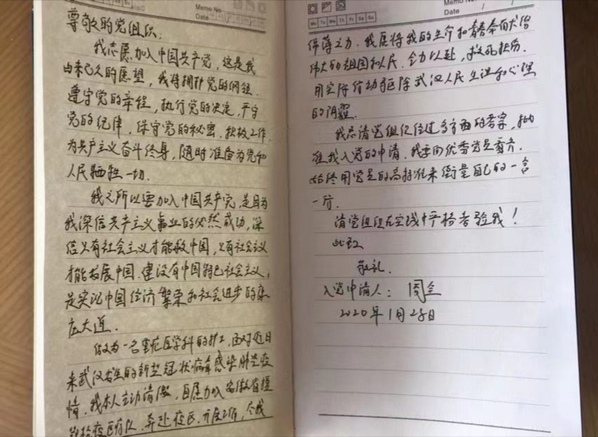 Date
尊敬的党组织:
我志愿加入中国共产党,这是我
由来已久的愿望,我将拥护党的纲领,
遵守党的章程,执行党的决定,严守
党的纪律,保守党的秘密,积极工作
为共产主义奋斗终身,随时准备为党和
人民牺牲一切。
我之所以要加入中国共产党,是因为
我深信共产主义事业的必然成功,深
信只有社会主义才能救中国,只有社会主义
才能发展中国。建设有中国特色社会主义,
是实现中国经济繁荣和社会进步的康
庄大道。
做为一名重症医学科的护工,面对近日
来武汉发生的新型冠状病毒感染肺炎疫
情,我本人主动请缨,自愿加入安徽省援
Memo No.
Mo Tu We Th Fr Sa Su
Date / /
绵薄之力,我愿将我的生命和青春奉献给
伟大的祖国和人民,全力以赴,救死扶伤,
用实际行动驱除武汉人民生活和心理
的阴霾。
我恳请党组织经过多方面的考察,批
准我入党的申请,我要向优秀党员看齐,
始终用党员的高标准来衡量自己的一言
一行。
请党组织在实践中严格考验我!
此致
敬礼
入党申请人:周
2020年1月28日